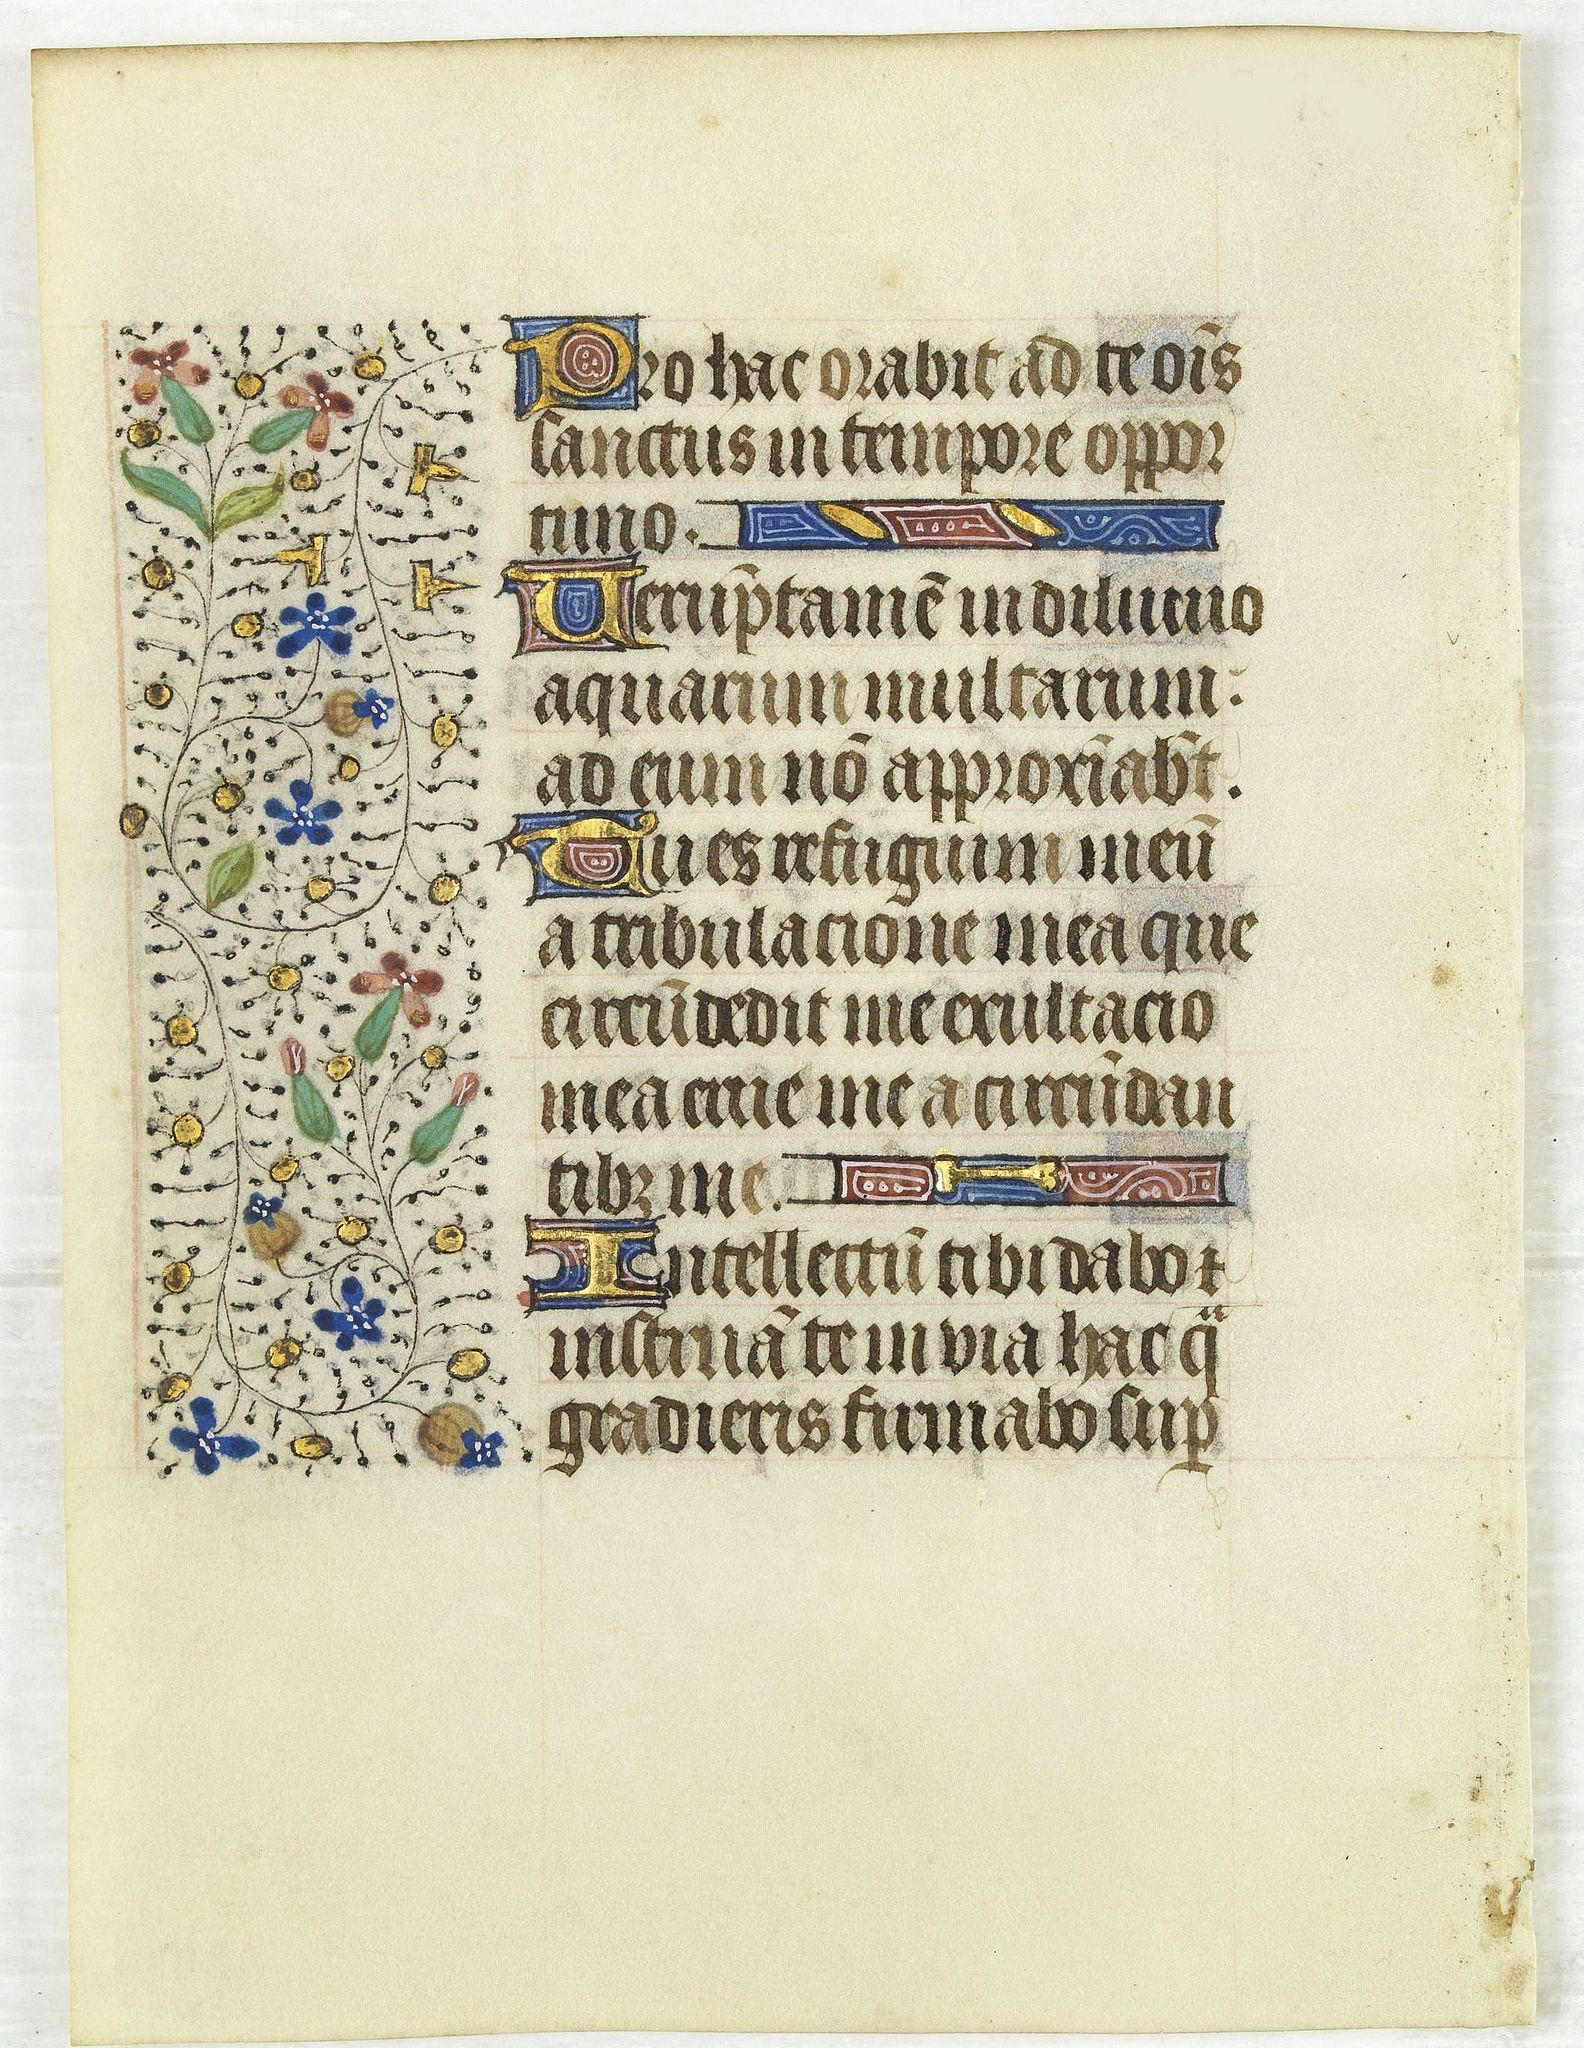 Pro hac orabit ad te oīs
sanctus in tempore oppor
tuno.
Ueruptamē in diluuio
aquarum multarum:
ad eum nō approxīabūt.
Tu es refugium meū
a tribulacione mea que
circūdedit me exultacio
mea erue me a circūdan
tibꝫ me.
Intellectū tibi dabo ⁊
instruā te in via hac qͣ
gradieris firmabo suꝑ